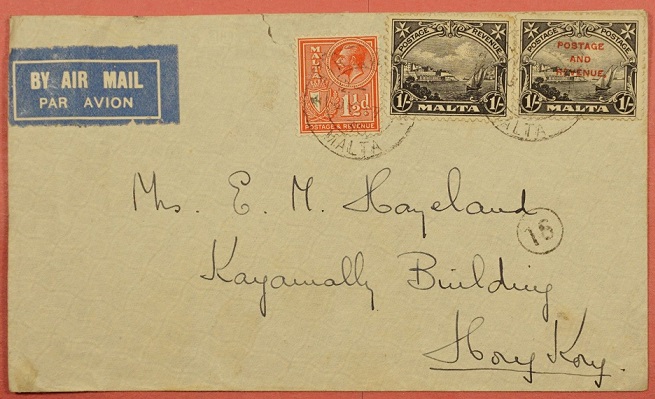 BY AIR MAIL
PAR AVION
MALTA
1½d
POSTAGE & REVENUE
MALTA
POSTAGE REVENUE
1/- MALTA 1/-
POSTAGE POSTAGE
POSTAGE
AND
REVENUE
1/- MALTA 1/-
MALTA
Mrs. E. M. Hayeland
18
Kayamally Building
Hong Kong.